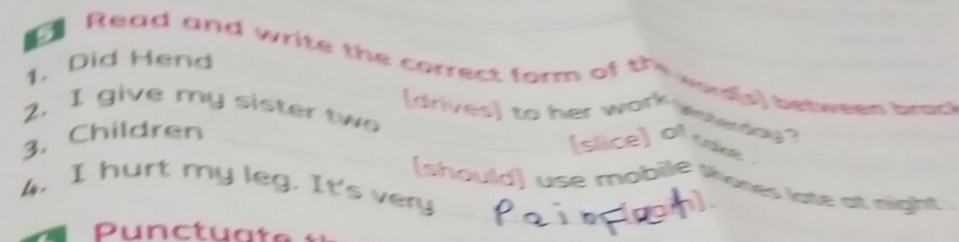 5 Read and write the correct form of the word(s) between brack
1. Did Hend (drives) to her work yesterday?
2. I give my sister two (slice) of cake.
3. Children (should) use mobile phones late at night.
4. I hurt my leg. It's very
Punctuate